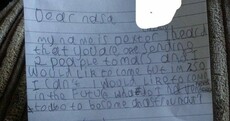 Dear nasa
my name is        I heard
that you are sending
2 people to mars and I
would like to come but im
I can't      I would like to come
in the future what do I have
to do to become an astronaut?